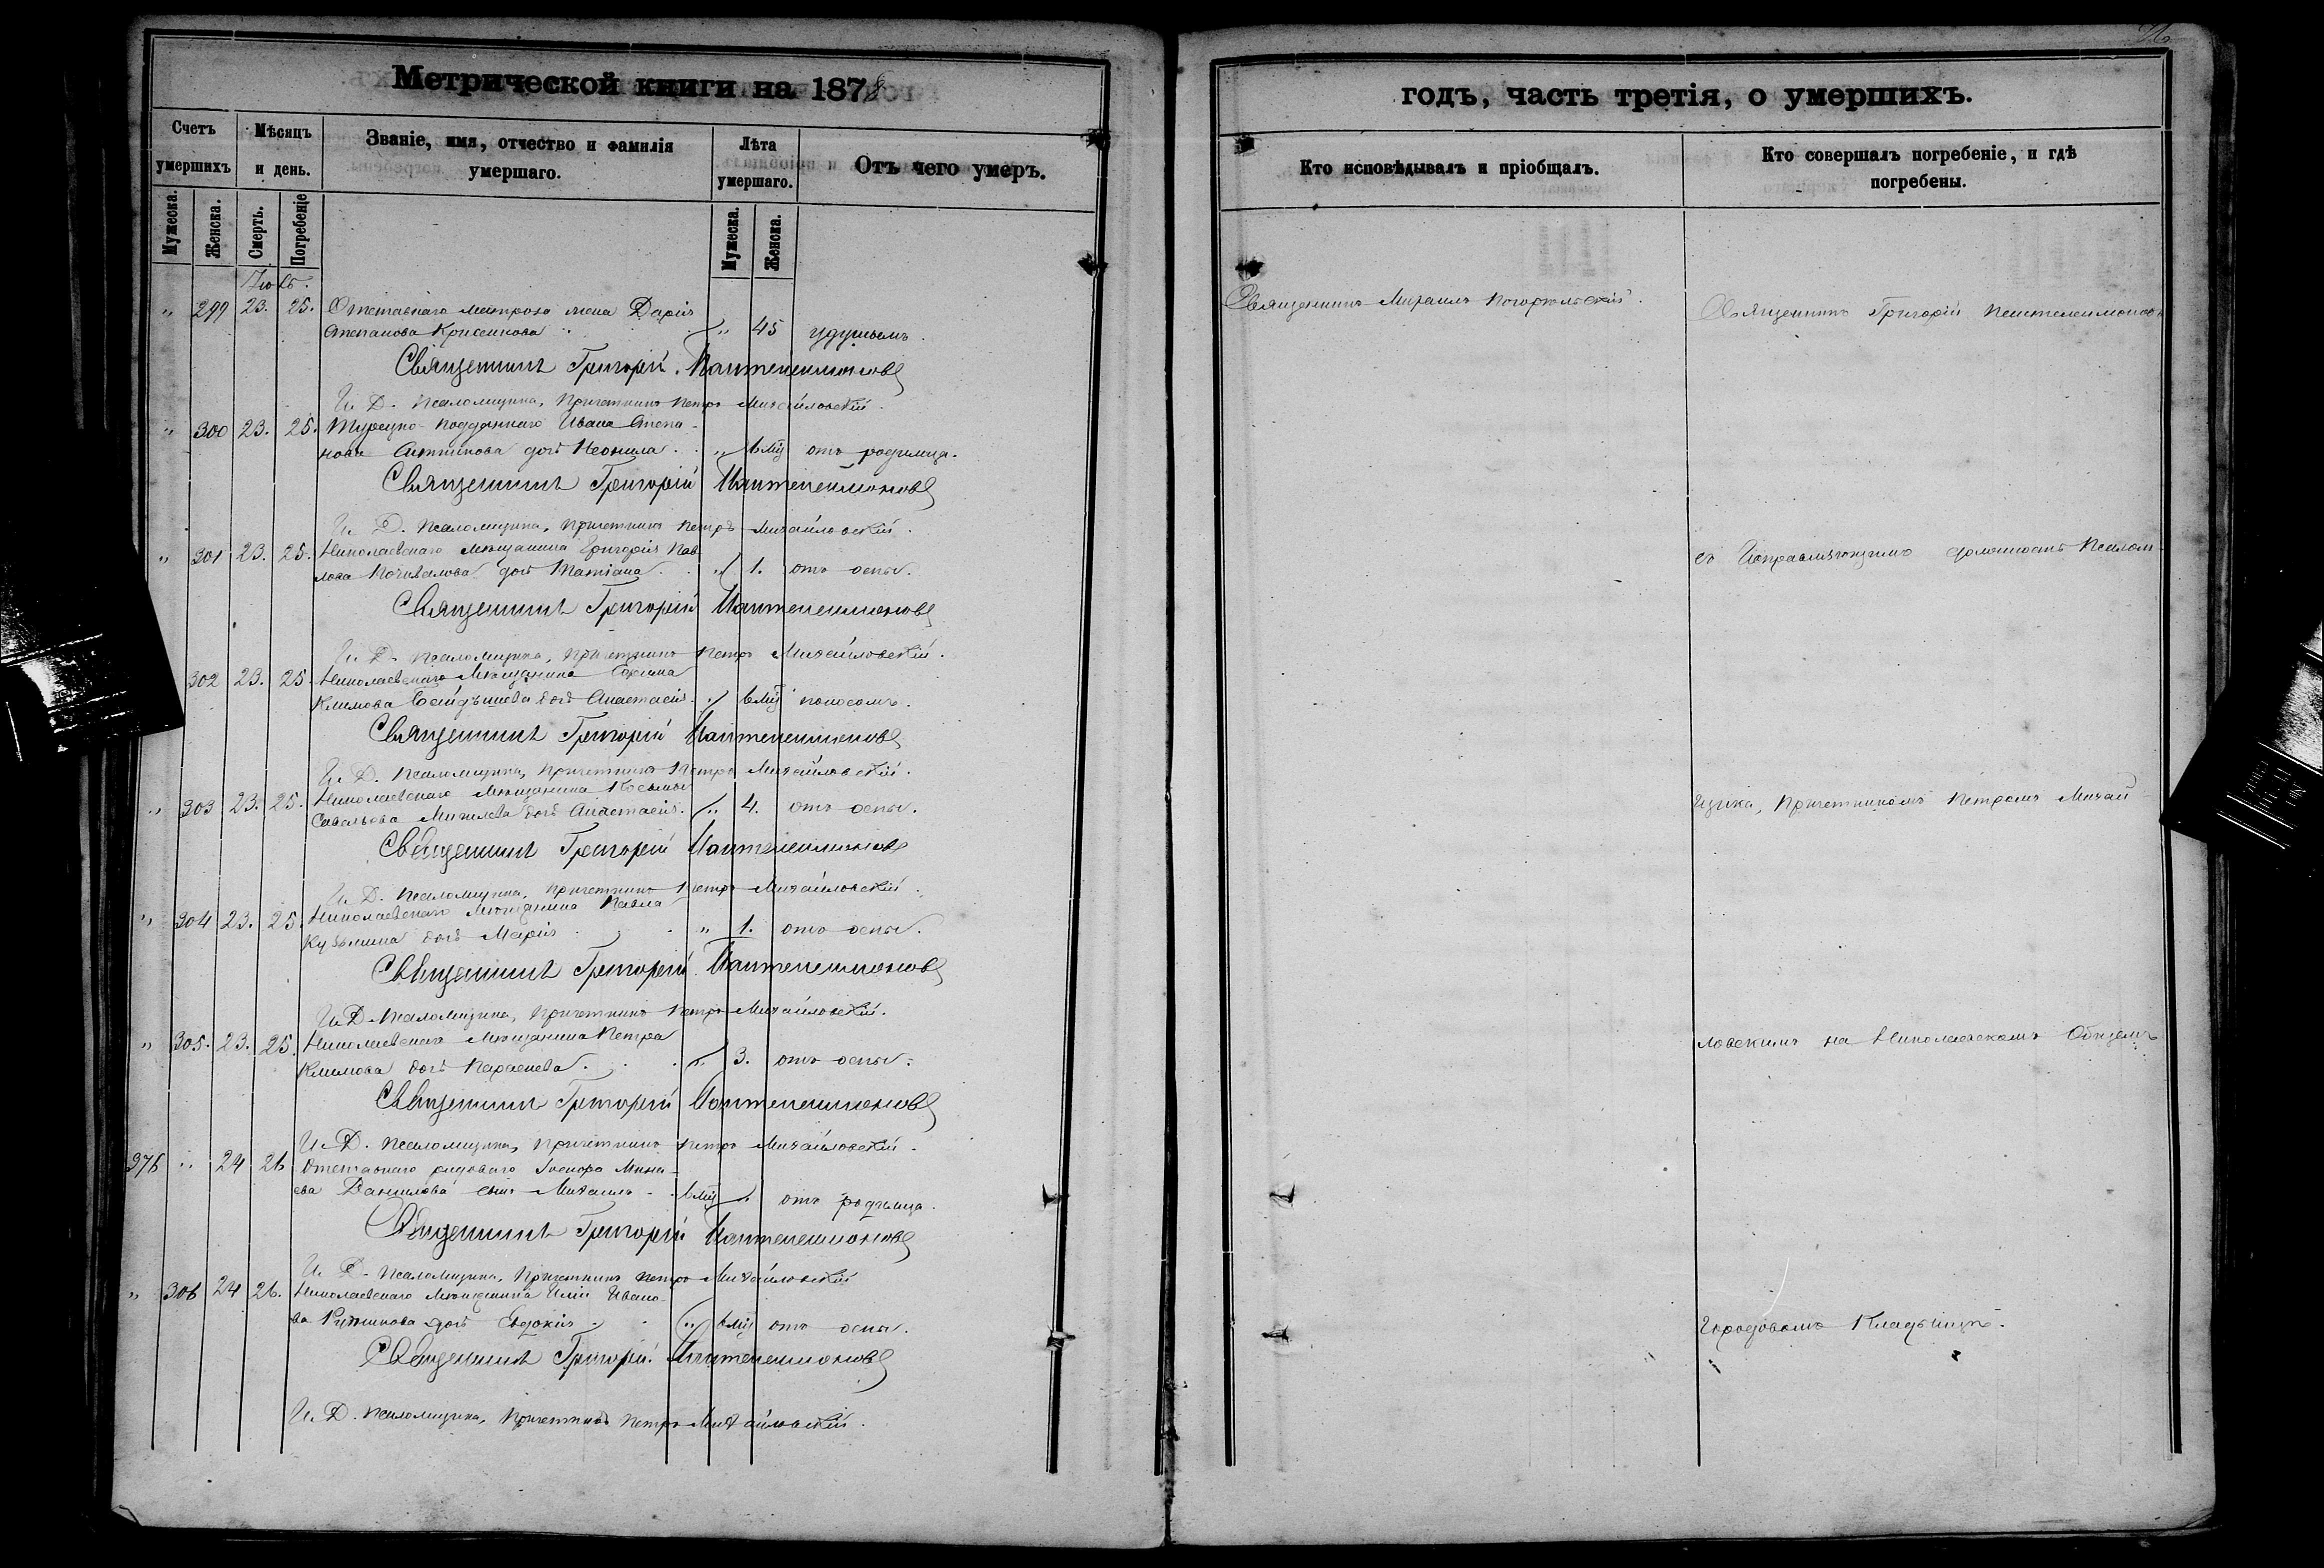 Метрической книги на 1878
Счетъ умершихъ
Мѣсяцъ и день.
Званіе, имя, отчество и фамилія умершаго.
Лѣта умершаго.
Отъ чего умеръ.
Мужеска.
Женска.
Смерть.
Погребеніе
Мужеска.
Женска.
" 299 23. 25. Отставнаго матроса жена Дарія
Степанова " 45 удушьемъ.
Священникъ Григорій Пантелеимоновъ
И. Д. Псаломщика, Причетникъ Петръ Михайловскій.
" 300 23. 25. Турецко-подданнаго Ивана Степа-
нова дочь Неонила " 6 мц отъ родимца.
Священникъ Григорій Пантелеимоновъ
И. Д. Псаломщика, Причетникъ Петръ Михайловскій.
" 301 23. 25. Николаевскаго мѣщанина Григорія Пав
лова дочь Татіана " 1. отъ оспы.
Священникъ Григорій Пантелеимоновъ
И. Д. Псаломщика, Причетникъ Петръ Михайловскій.
302 23. 25. Николаевскаго Мѣщанина
Климова дочь Анастасія " 6 мц поносомъ.
Священникъ Григорій Пантелеимоновъ
И. Д. Псаломщика, Причетникъ Петръ Михайловскій.
" 303 23. 25. Николаевскаго Мѣщанина Косьмы
Савельева дочь Анастасія " 4. отъ оспы.
Священникъ Григорій Пантелеимоновъ
И. Д. Псаломщика, Причетникъ Петръ Михайловскій.
" 304 23. 25. Николаевскаго Мѣщанина Павла
Кузьмина дочь Марія " 1. отъ оспы.
Священникъ Григорій Пантелеимоновъ
И. Д. Псаломщика, Причетникъ Петръ Михайловскій.
" 305. 23. 25. Николаевскаго Мѣщанина Петра
Климова дочь Параскева " 3. отъ оспы.
Священникъ Григорій Пантелеимоновъ
И. Д. Псаломщика, Причетникъ Петръ Михайловскій.
376 " 24 26 Отставнаго рядоваго Мина-
ева Данилова сынъ Михаилъ 6 мц " отъ родимца.
Священникъ Григорій Пантелеимоновъ
И. Д. Псаломщика, Причетникъ Петръ Михайловскій
" 306 24 26. Николаевскаго Мѣщанина Иліи Ивано-
ва дочь Евдокія " 6 мц отъ оспы.
Священникъ Григорій Пантелеимоновъ
И. Д. Псаломщика, Причетникъ Петръ Михайловскій.
годъ, часть третія, о умершихъ.
Кто исповѣдывалъ и пріобщалъ.
Кто совершалъ погребеніе, и гдѣ погребены.
Священникъ Михаилъ Погорѣльскій.
Священникъ Григорій Пантелеимоновъ
съ Исправляющимъ должность Псалом-
щика, Причетникомъ Петромъ Михай-
ловскимъ на Николаевскомъ Общемъ
Городовомъ Кладбищѣ.